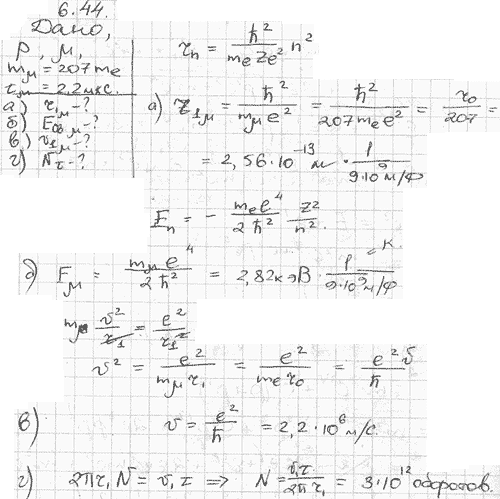 6.44.
Дано,
p, μ,
m_μ = 207 m_e
τ_μ = 2,2 мкс.
а) r_1μ - ?
б) E_∞μ - ?
в) v_1μ - ?
г) N_τ - ?
r_n = ħ² / (m_e Z e²) n²
а) r_1μ = ħ² / (m_μ e²) = ħ² / (207 m_e e²) = r_0 / 207 =
= 2,56·10⁻¹³ м · 1 / (9·10⁹ м/Ф)
E_n = - m_e e⁴ / (2ħ²) z² / n².
б) E_μ = m_μ e⁴ / (2ħ²) = 2,82 кэВ · 1 / (9·10⁹ м/Ф)
m_μ v² / r_1 = e² / r_1²
v² = e² / (m_μ r_1) = e² / (m_e r_0) = e² v / ħ
в) v = e² / ħ = 2,2·10⁶ м/с.
г) 2πr_1 N = v_1 τ => N = v_1 τ / (2πr_1) = 3·10¹² оборотов.